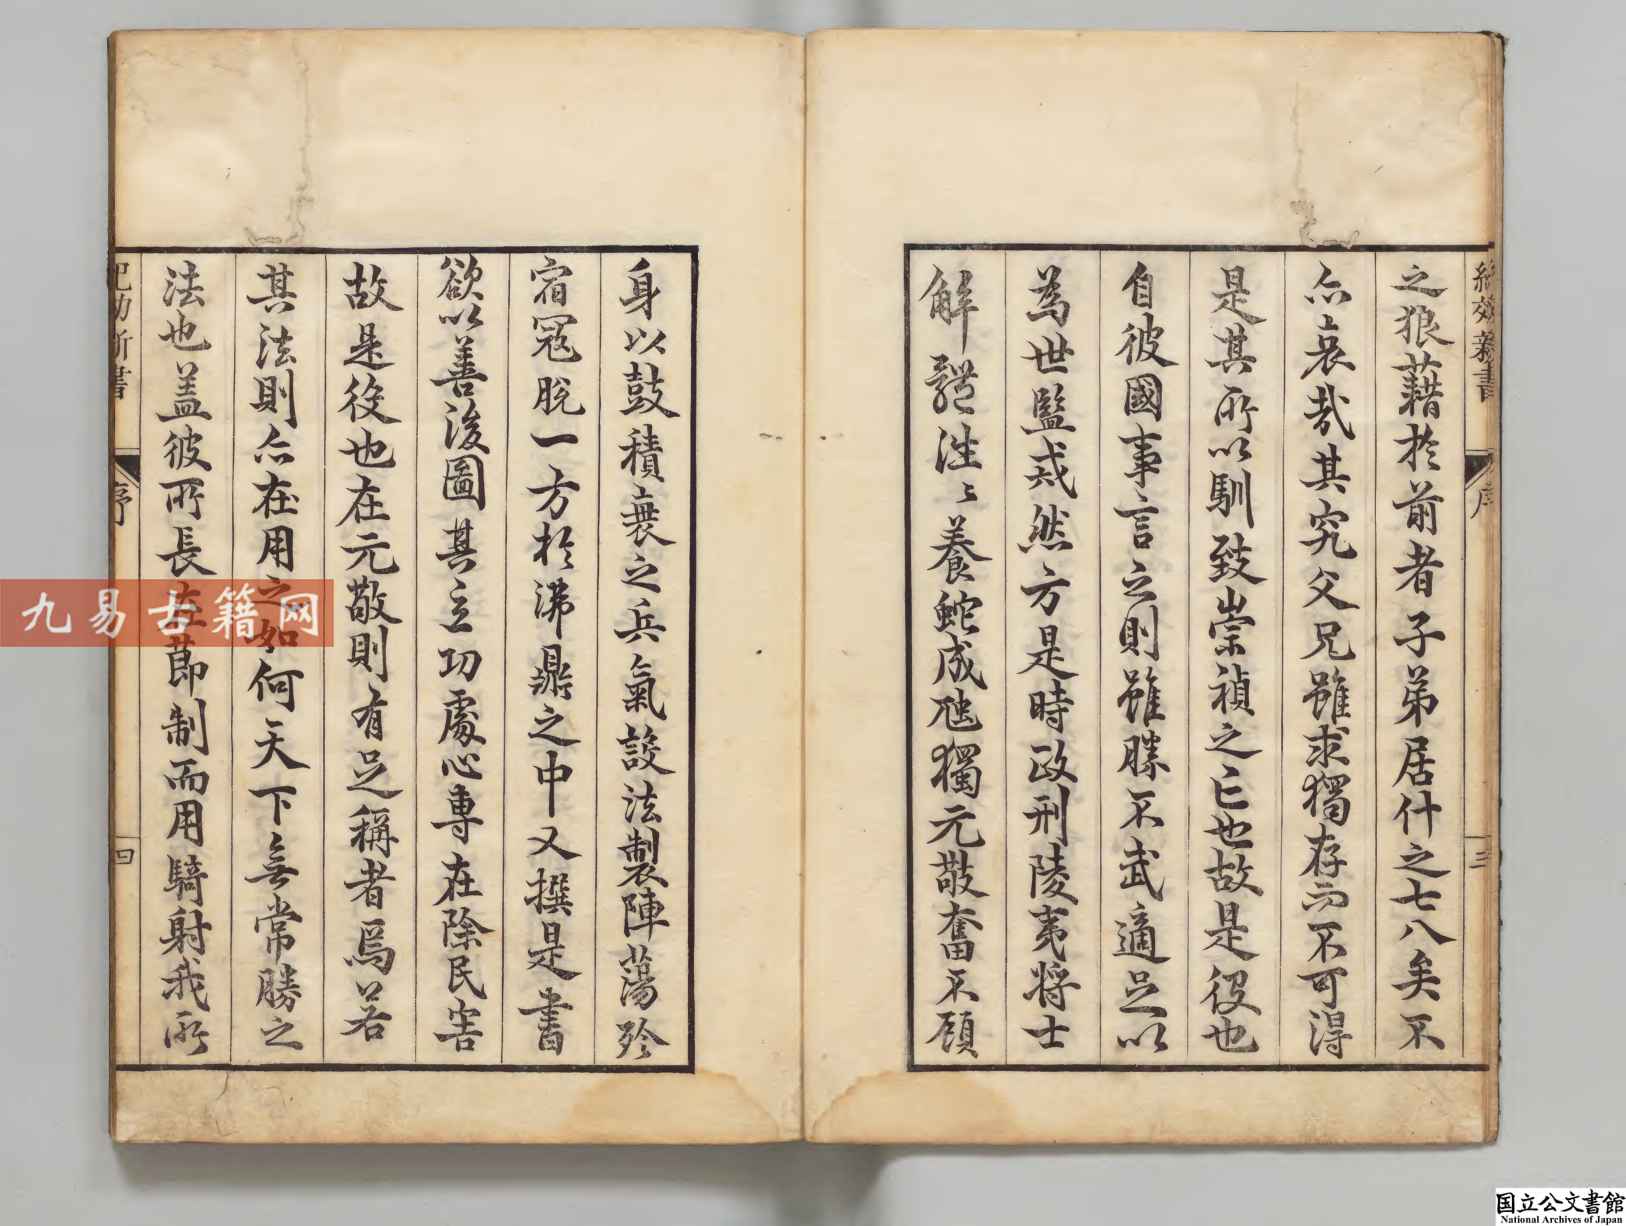 紀效新書
序
三
之狼藉於前者子弟居什之七八矣不
亦哀哉其究父兄雖求獨存而不可得
是其所以馴致崇禎之亡也故是役也
自彼國事言之則雖勝不武適足以
為世監戒然方是時政刑陵夷將士
解體泄〻養蛇成虺獨元敬奮不顧
身以鼓積衰之兵氣設法製陣蕩殄
宿寇脫一方於沸鼎之中又撰是書
欲以善後圖其立功處心專在除民害
故是役也在元敬則有足稱者焉若
其法則亦在用之如何天下無常勝之
法也盖彼所長在節制而用騎射我所
紀効新書
序
四
九易古籍网
国立公文書館
National Archives of Japan